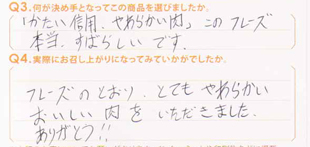 Q3.何が決め手となってこの商品を選びましたか。
「かたい信用、やわらかい肉」このフレーズ
本当、すばらしいです。
Q4.実際にお召し上がりになってみていかがでしたか。
フレーズのとおり、とてもやわらかい
おいしい肉をいただきました。
ありがとう!!